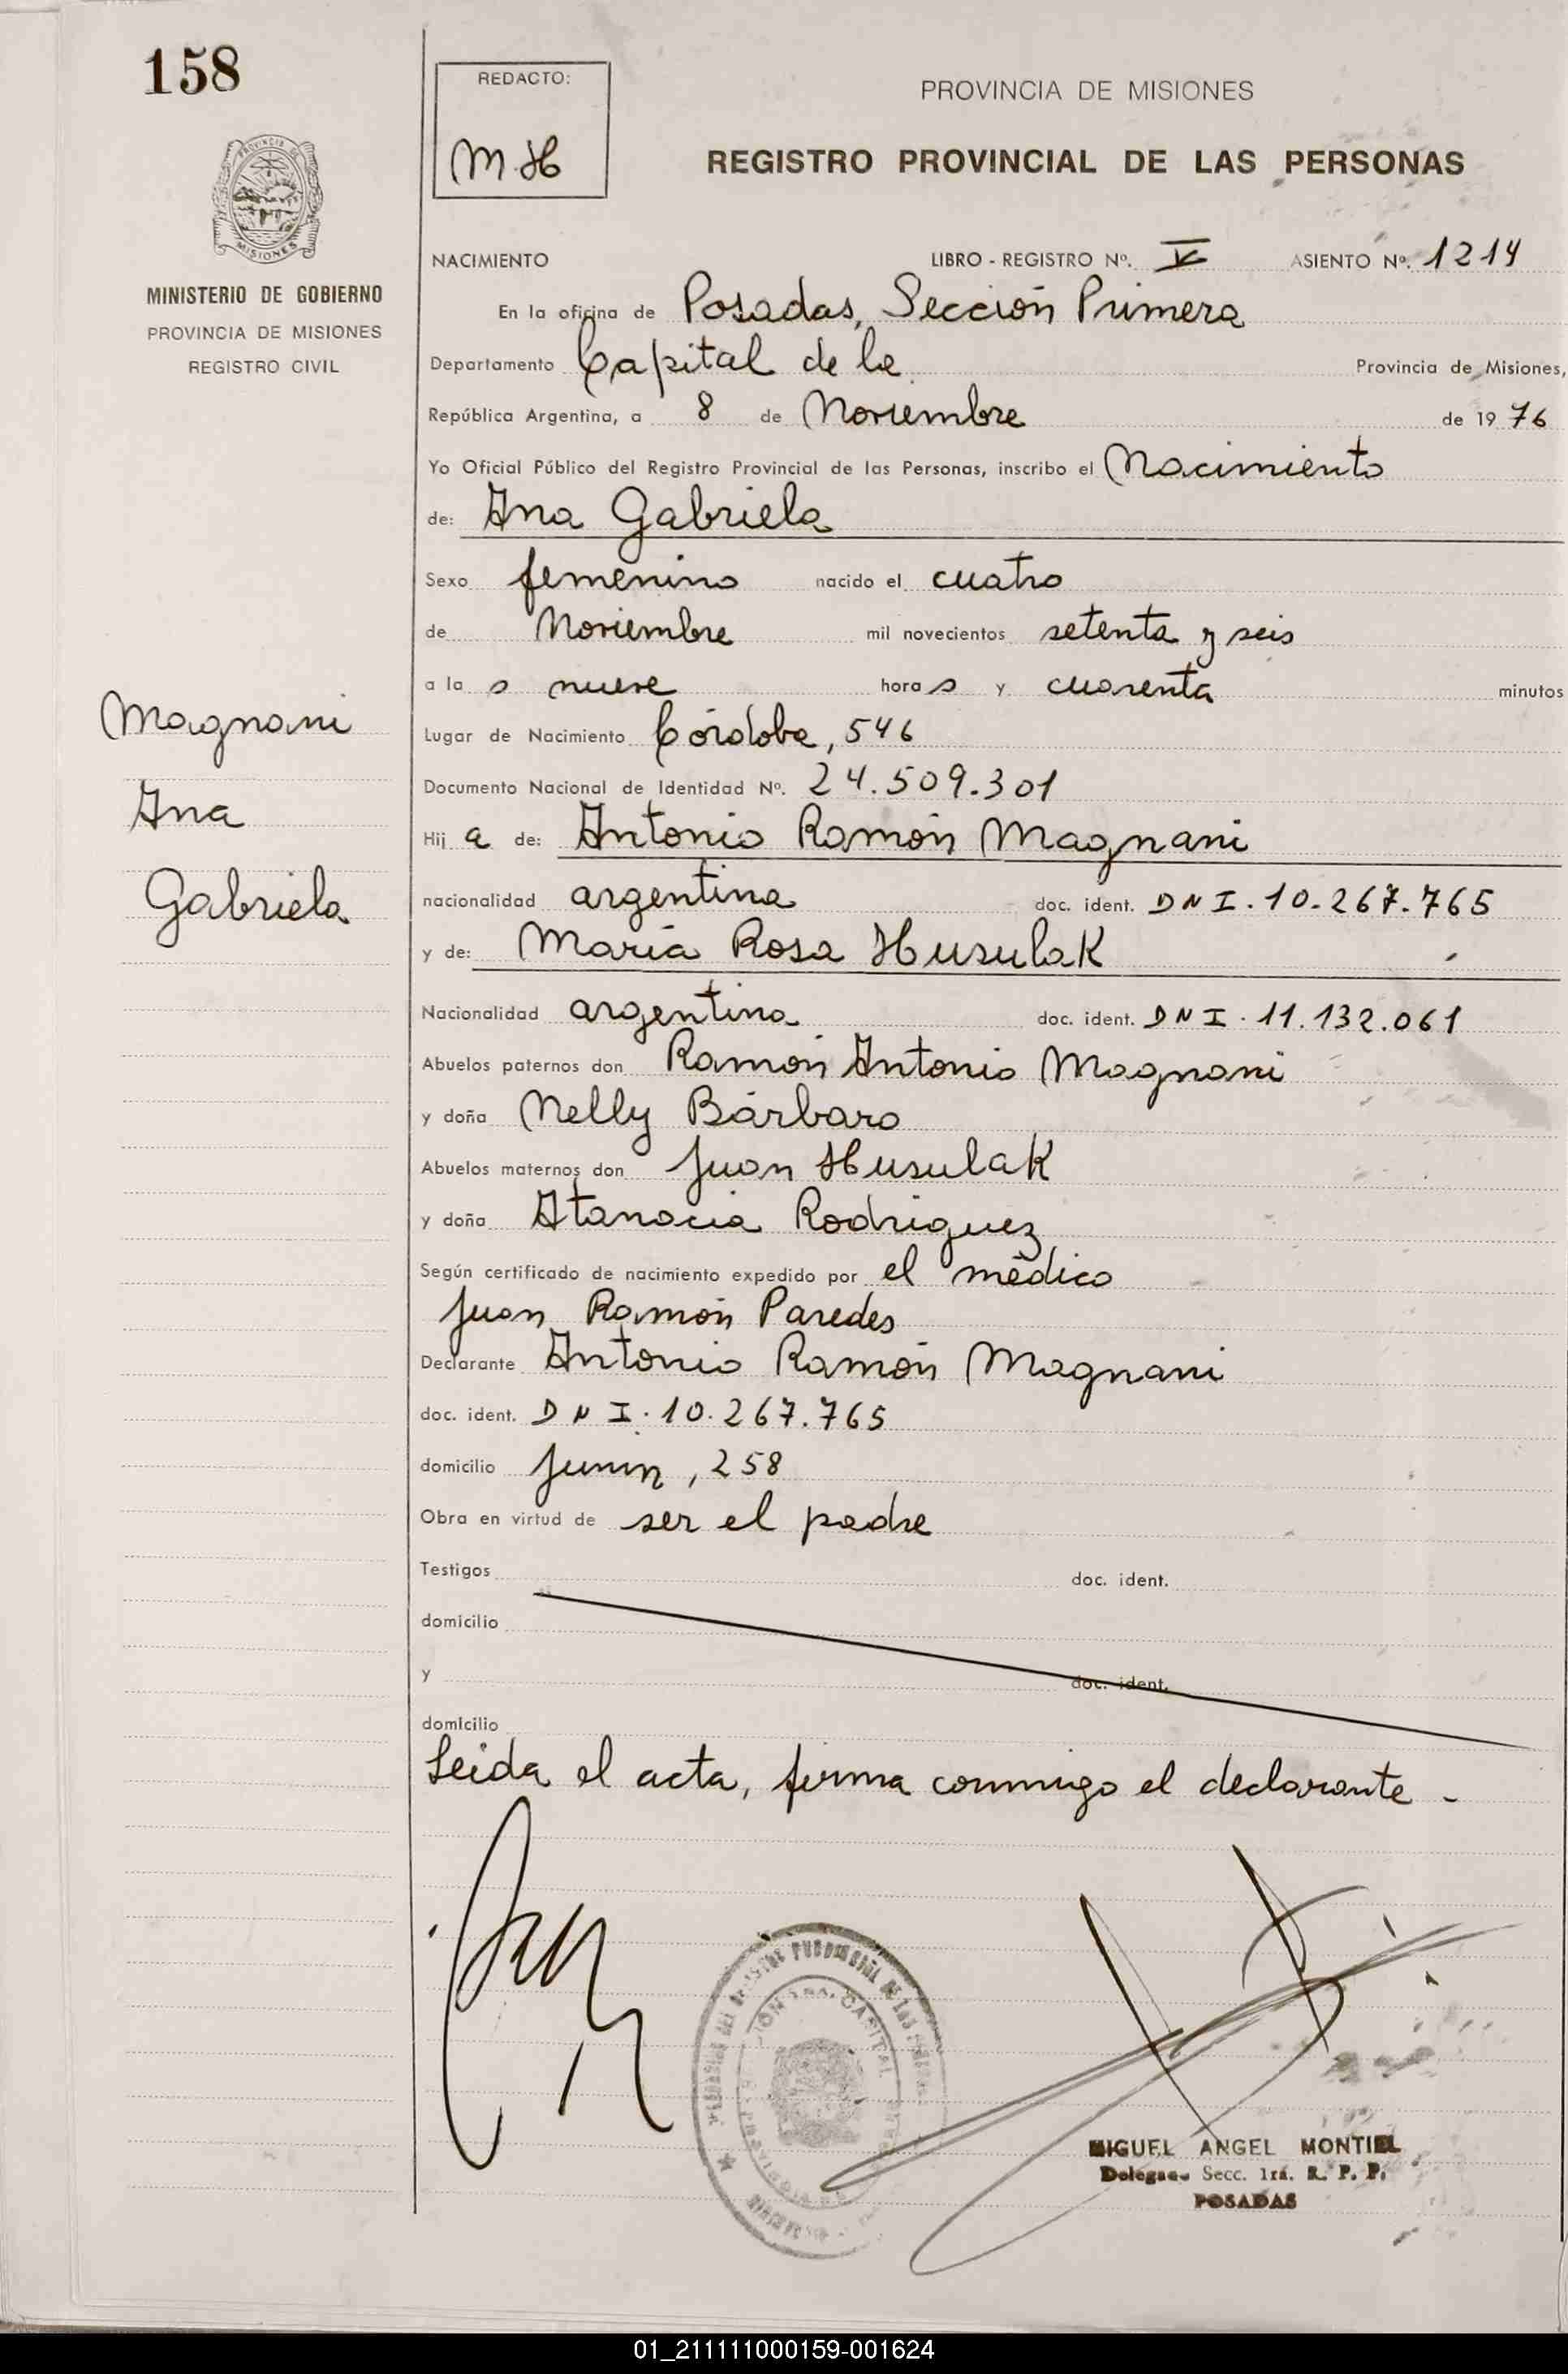 158
REDACTO:
M.H
PROVINCIA DE MISIONES
REGISTRO PROVINCIAL DE LAS PERSONAS
PROVINCIA DE
MISIONES
MINISTERIO DE GOBIERNO
PROVINCIA DE MISIONES
REGISTRO CIVIL
NACIMIENTO LIBRO - REGISTRO Nº. V ASIENTO Nº. 1214
En la oficina de Posadas, Sección Primera
Departamento Capital de la Provincia de Misiones,
República Argentina, a 8 de Noviembre de 1976
Yo Oficial Público del Registro Provincial de las Personas, inscribo el Nacimiento
de: Ana Gabriela
Sexo femenino nacido el cuatro
de Noviembre mil novecientos setenta y seis
a las nueve horas y cuarenta minutos
Lugar de Nacimiento Córdoba, 546
Documento Nacional de Identidad Nº. 24.509.301
Hija de: Antonio Ramón Magnani
nacionalidad argentina doc. ident. DNI.10.267.765
y de: María Rosa Husulak
Nacionalidad argentina doc. ident. DNI.11.132.061
Abuelos paternos don Ramón Antonio Magnani
y doña Nelly Bárbaro
Abuelos maternos don Juan Husulak
y doña Atanacia Rodriguez
Según certificado de nacimiento expedido por el médico
Juan Ramón Paredes
Declarante Antonio Ramón Magnani
doc. ident. DNI.10.267.765
domicilio Junin, 258
Obra en virtud de ser el padre
Testigos doc. ident.
domicilio
y doc. ident.
domicilio
Leida el acta, firma conmigo el declarante -
Magnani
Ana
Gabriela
CAPITAL
MIGUEL ANGEL MONTIEL
Delegado Secc. 1ra. R. P. P.
POSADAS
01_211111000159-001624